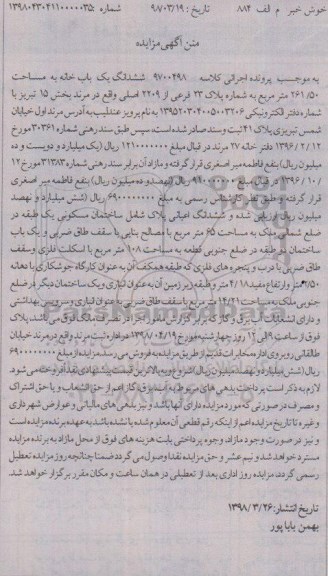 خوش خبر م الف ۸۸۴ تاریخ : ۹۸/۰۳/۱۹ شماره : ۱۳۹۸۰۴۳۰۴۱۱۰۰۰۰۰۳۵
متن آگهی مزایده
به موجب پرونده اجرائی کلاسه ۹۷۰۰۴۹۸ ششدانگ یک باب خانه به مساحت
۲۶۱/۵۰ متر مربع به شماره پلاک ۲۳ فرعی از ۲۲۰۹ اصلی واقع در مرند بخش ۱۵ تبریز با
شماره دفتر الکترونیکی ۱۳۹۵۲۰۳۰۴۰۰۵۰۰۳۲۰۶ به نام پرویز عندلیب به آدرس مرند اول خیابان
شمس تبریزی پلاک ۴۱ ثبت و سند صادر شده است، سپس طبق سند رهنی شماره ۳۰۳۶۱ مورخ
۱۳۹۶/۲/۱۲ دفتر خانه ۲۷ مرند در قبال مبلغ ۱۲۱۰۰۰۰۰۰۰ ریال (یک میلیارد و دویست و ده
میلیون ریال) بنفع فاطمه میر اصغری قرار گرفته و مازاد آن برابر سند رهنی شماره ۳۱۲۸۳ مورخ ۱۲
/۱۰/۱۳۹۶ در قبال مبلغ ۹۱۰۰۰۰۰۰۰ ریال (نهصد و ده میلیون ریال) بنفع فاطمه میر اصغری
قرار گرفته و طبق نظر کارشناس رسمی به مبلغ ۶۹۰۰۰۰۰۰۰۰ ریال (شش میلیارد و نهصد
میلیون ریال) ارزیابی شده و ششدانگ اعیانی پلاک شامل ساختمان مسکونی یک طبقه در
ضلع شمالی ملک به مساحت ۶۵ متر مربع با مصالح بنایی با سقف طاق ضربی و یک باب
ساختمان دو طبقه در ضلع جنوبی قطعه به مساحت ۱۰۸ متر مربع با اسکلت فلزی و سقف
طاق ضربی با درب و پنجره های فلزی که طبقه همکف آن به عنوان کارگاه جوشکاری با دهانه
متر و ارتفاع مفید ۴/۱۸ متر و طبقه زیر زمین آن به عنوان انباری و یک ساختمان دیگر در ضلع
جنوبی ملک به مساحت ۱۴/۲۱ متر مربع با سقف طاق ضربی به عنوان انباری و سرویس بهداشتی
و دارای انشعابات آب و برق و گاز که برابر گزارش کارشناس در تصرف مالک فوق می باشد. پلاک
فوق از ساعت ۹ الی ۱۲ روز چهارشنبه مورخ ۱۳۹۸/۰۴/۱۹ در اداره ثبت مرند واقع در مرند خیابان
طالقانی روبروی اداره مخابرات قدیم از طریق مزایده به فروش می رسد. مزایده از مبلغ ۶۹۰۰۰۰۰۰۰۰
ریال (شش میلیارد و نهصد میلیون ریال) شروع و به بالاترین قیمت پیشنهادی نقدا فروخته می شود.
لازم به ذکر است پرداخت بدهی های مربوطه به آب، برق، گاز اعم از حق انشعاب و یا حق اشتراک
و مصرف در صورتی که مورد مزایده دارای آنها باشد و نیز بدهی های مالیاتی و عوارض شهرداری
و غیره تا تاریخ مزایده اعم از اینکه رقم قطعی آن معلوم شده یا نشده باشد به عهده برنده مزایده است
و نیز در صورت وجود مازاد، وجوه پرداختی بابت هزینه های فوق از محل مازاد به برنده مزایده
مسترد خواهد شد و نیم عشر و حق مزایده نقدا وصول می گردد ضمنا چنانچه روز مزایده تعطیل
رسمی گردد، مزایده روز اداری بعد از تعطیلی در همان ساعت و مکان مقرر برگزار خواهد شد.
تاریخ انتشار: ۱۳۹۸/۳/۲۶
بهمن بابا پور